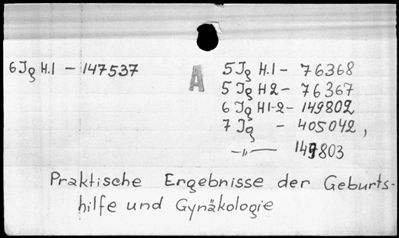 6 Jg H.1 - 147537
A
5 Jg H.1 - 76368
5 Jg H 2 - 76367
6 Jg H 1-2 - 149802
7 Jg - 405042,
-"- 149803
Praktische Ergebnisse der Geburts-
hilfe und Gynäkologie